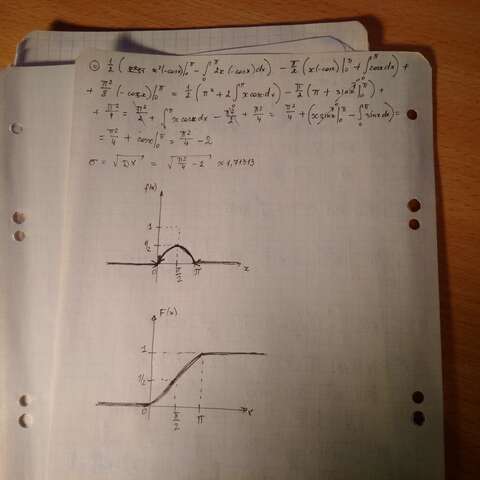 = 1/2 ( x²(-cosx)|₀^π - ∫₀^π 2x(-cosx)dx) - π/2 (x(-cosx)|₀^π + ∫₀^π cosxdx) +
+ π²/8 (-cosx)|₀^π = 1/2 (π² + 2∫₀^π xcosxdx) - π/2 (π + sinx|₀^π) +
+ π²/4 = π²/2 + ∫₀^π xcosxdx - π²/2 + π²/4 = π²/4 + (xsinx|₀^π - ∫₀^π sinxdx) =
= π²/4 + cosx|₀^π = π²/4 - 2
σ = √DX = √(π²/4 - 2)
f(x)
1
1/2
0 π/2 π x
F(x)
1
1/2
0 π/2 π x